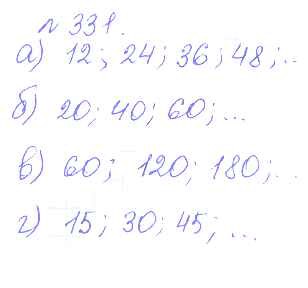 № 331.
а) 12; 24; 36; 48; ...
б) 20; 40; 60; ...
в) 60; 120; 180; ...
г) 15; 30; 45; ...